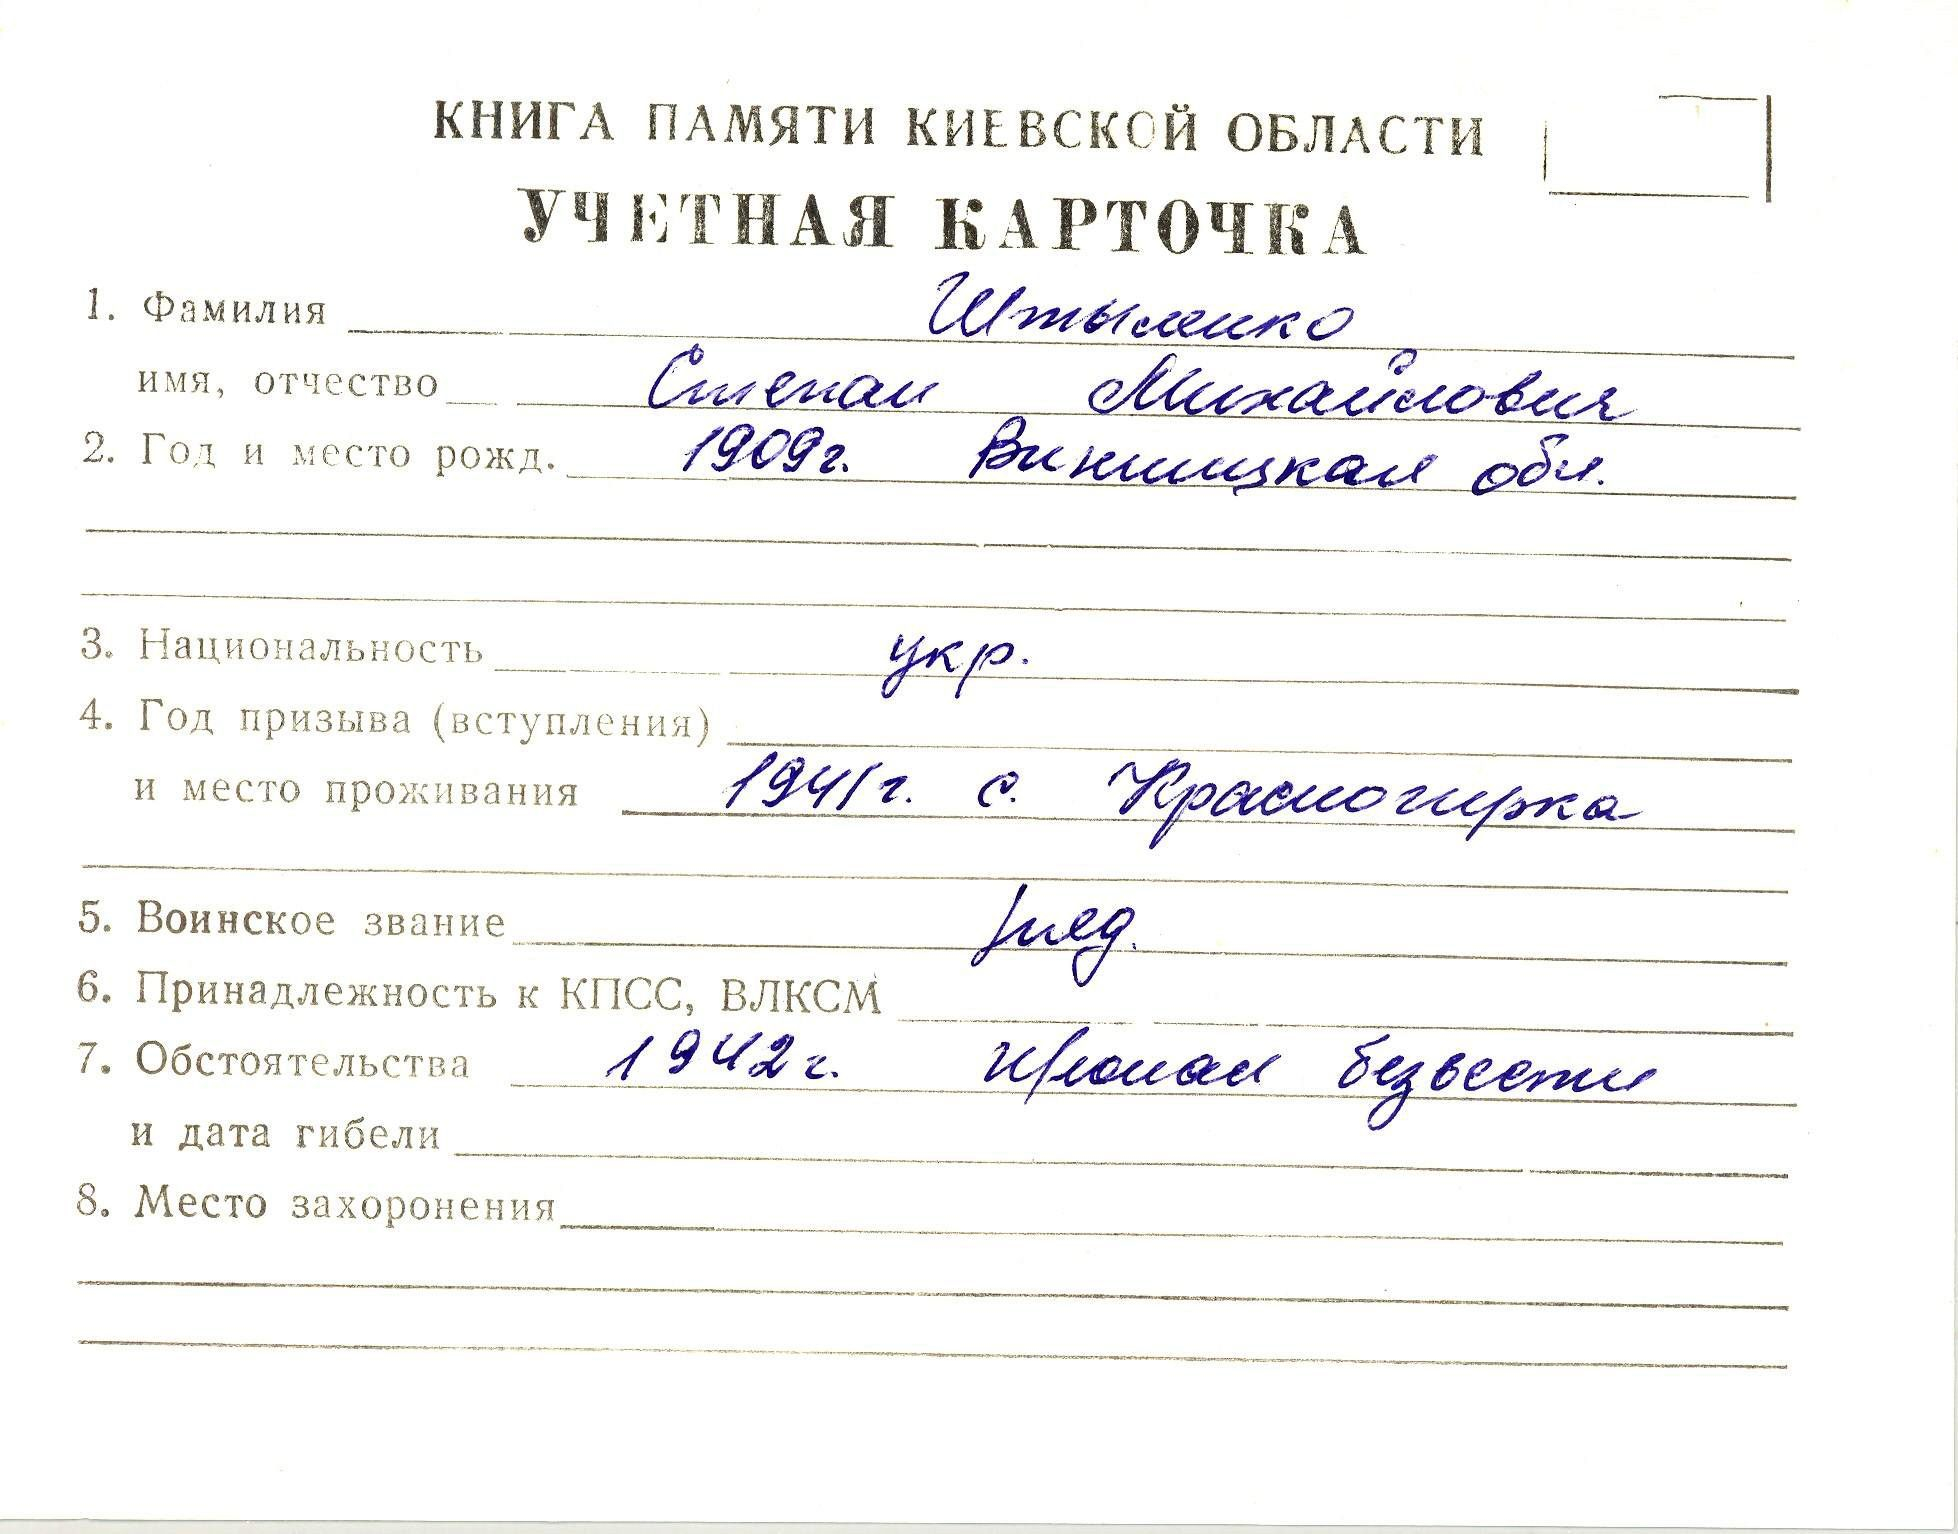 КНИГА ПАМЯТИ КИЕВСКОЙ ОБЛАСТИ
УЧЕТНАЯ КАРТОЧКА
1. Фамилия Штыленко
имя, отчество Степан Михайлович
2. Год и место рожд. 1909г. Винницкая обл.
3. Национальность укр.
4. Год призыва (вступления)
и место проживания 1941г. с. Красногирка
5. Воинское звание ряд.
6. Принадлежность к КПСС, ВЛКСМ
7. Обстоятельства 1942г. пропал безвести
и дата гибели
8. Место захоронения